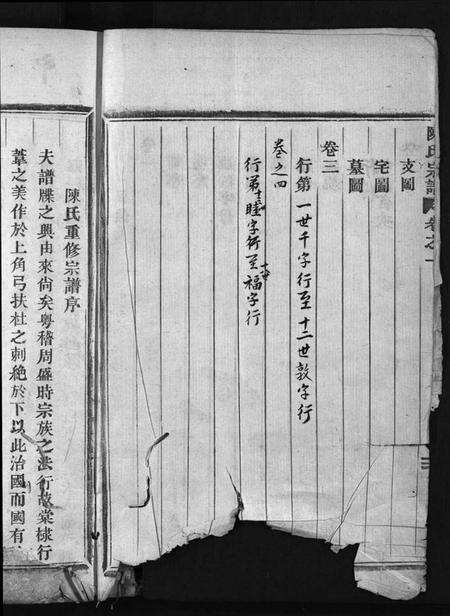 陳氏宗譜 卷之一
支圖
宅圖
墓圖
卷三
行第 一世千字行至十二世敦字行
卷之四
行第十三睦字行至十世福字行
陳氏重修宗譜序
夫譜牒之興由來尙矣粤稽周盛時宗族之法行故棠棣行
葦之美作於上角弓扶杜之刺絶於下以此治國而國有